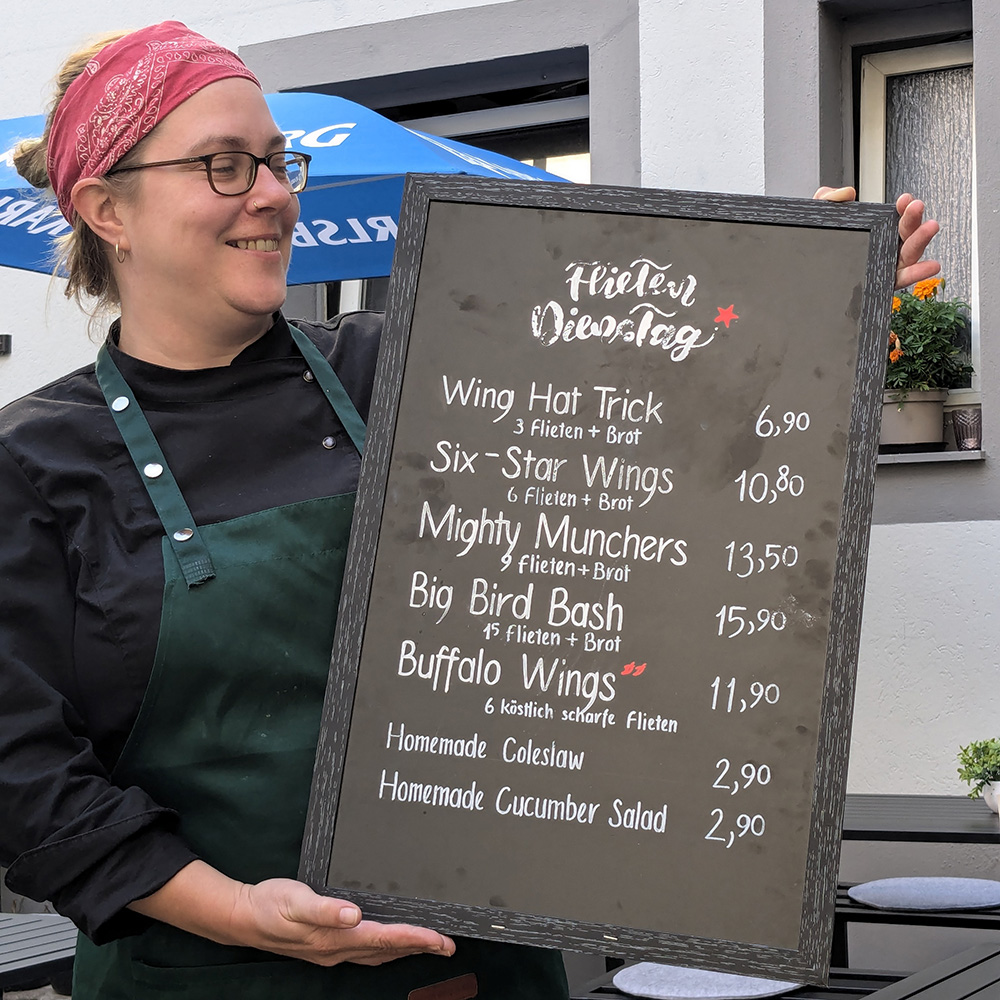 Flieten
Dienstag
Wing Hat Trick 6,90
3 Flieten + Brot
Six-Star Wings 10,80
6 Flieten + Brot
Mighty Munchers 13,50
9 Flieten + Brot
Big Bird Bash 15,90
15 Flieten + Brot
Buffalo Wings 11,90
6 köstlich scharfe Flieten
Homemade Coleslaw 2,90
Homemade Cucumber Salad 2,90